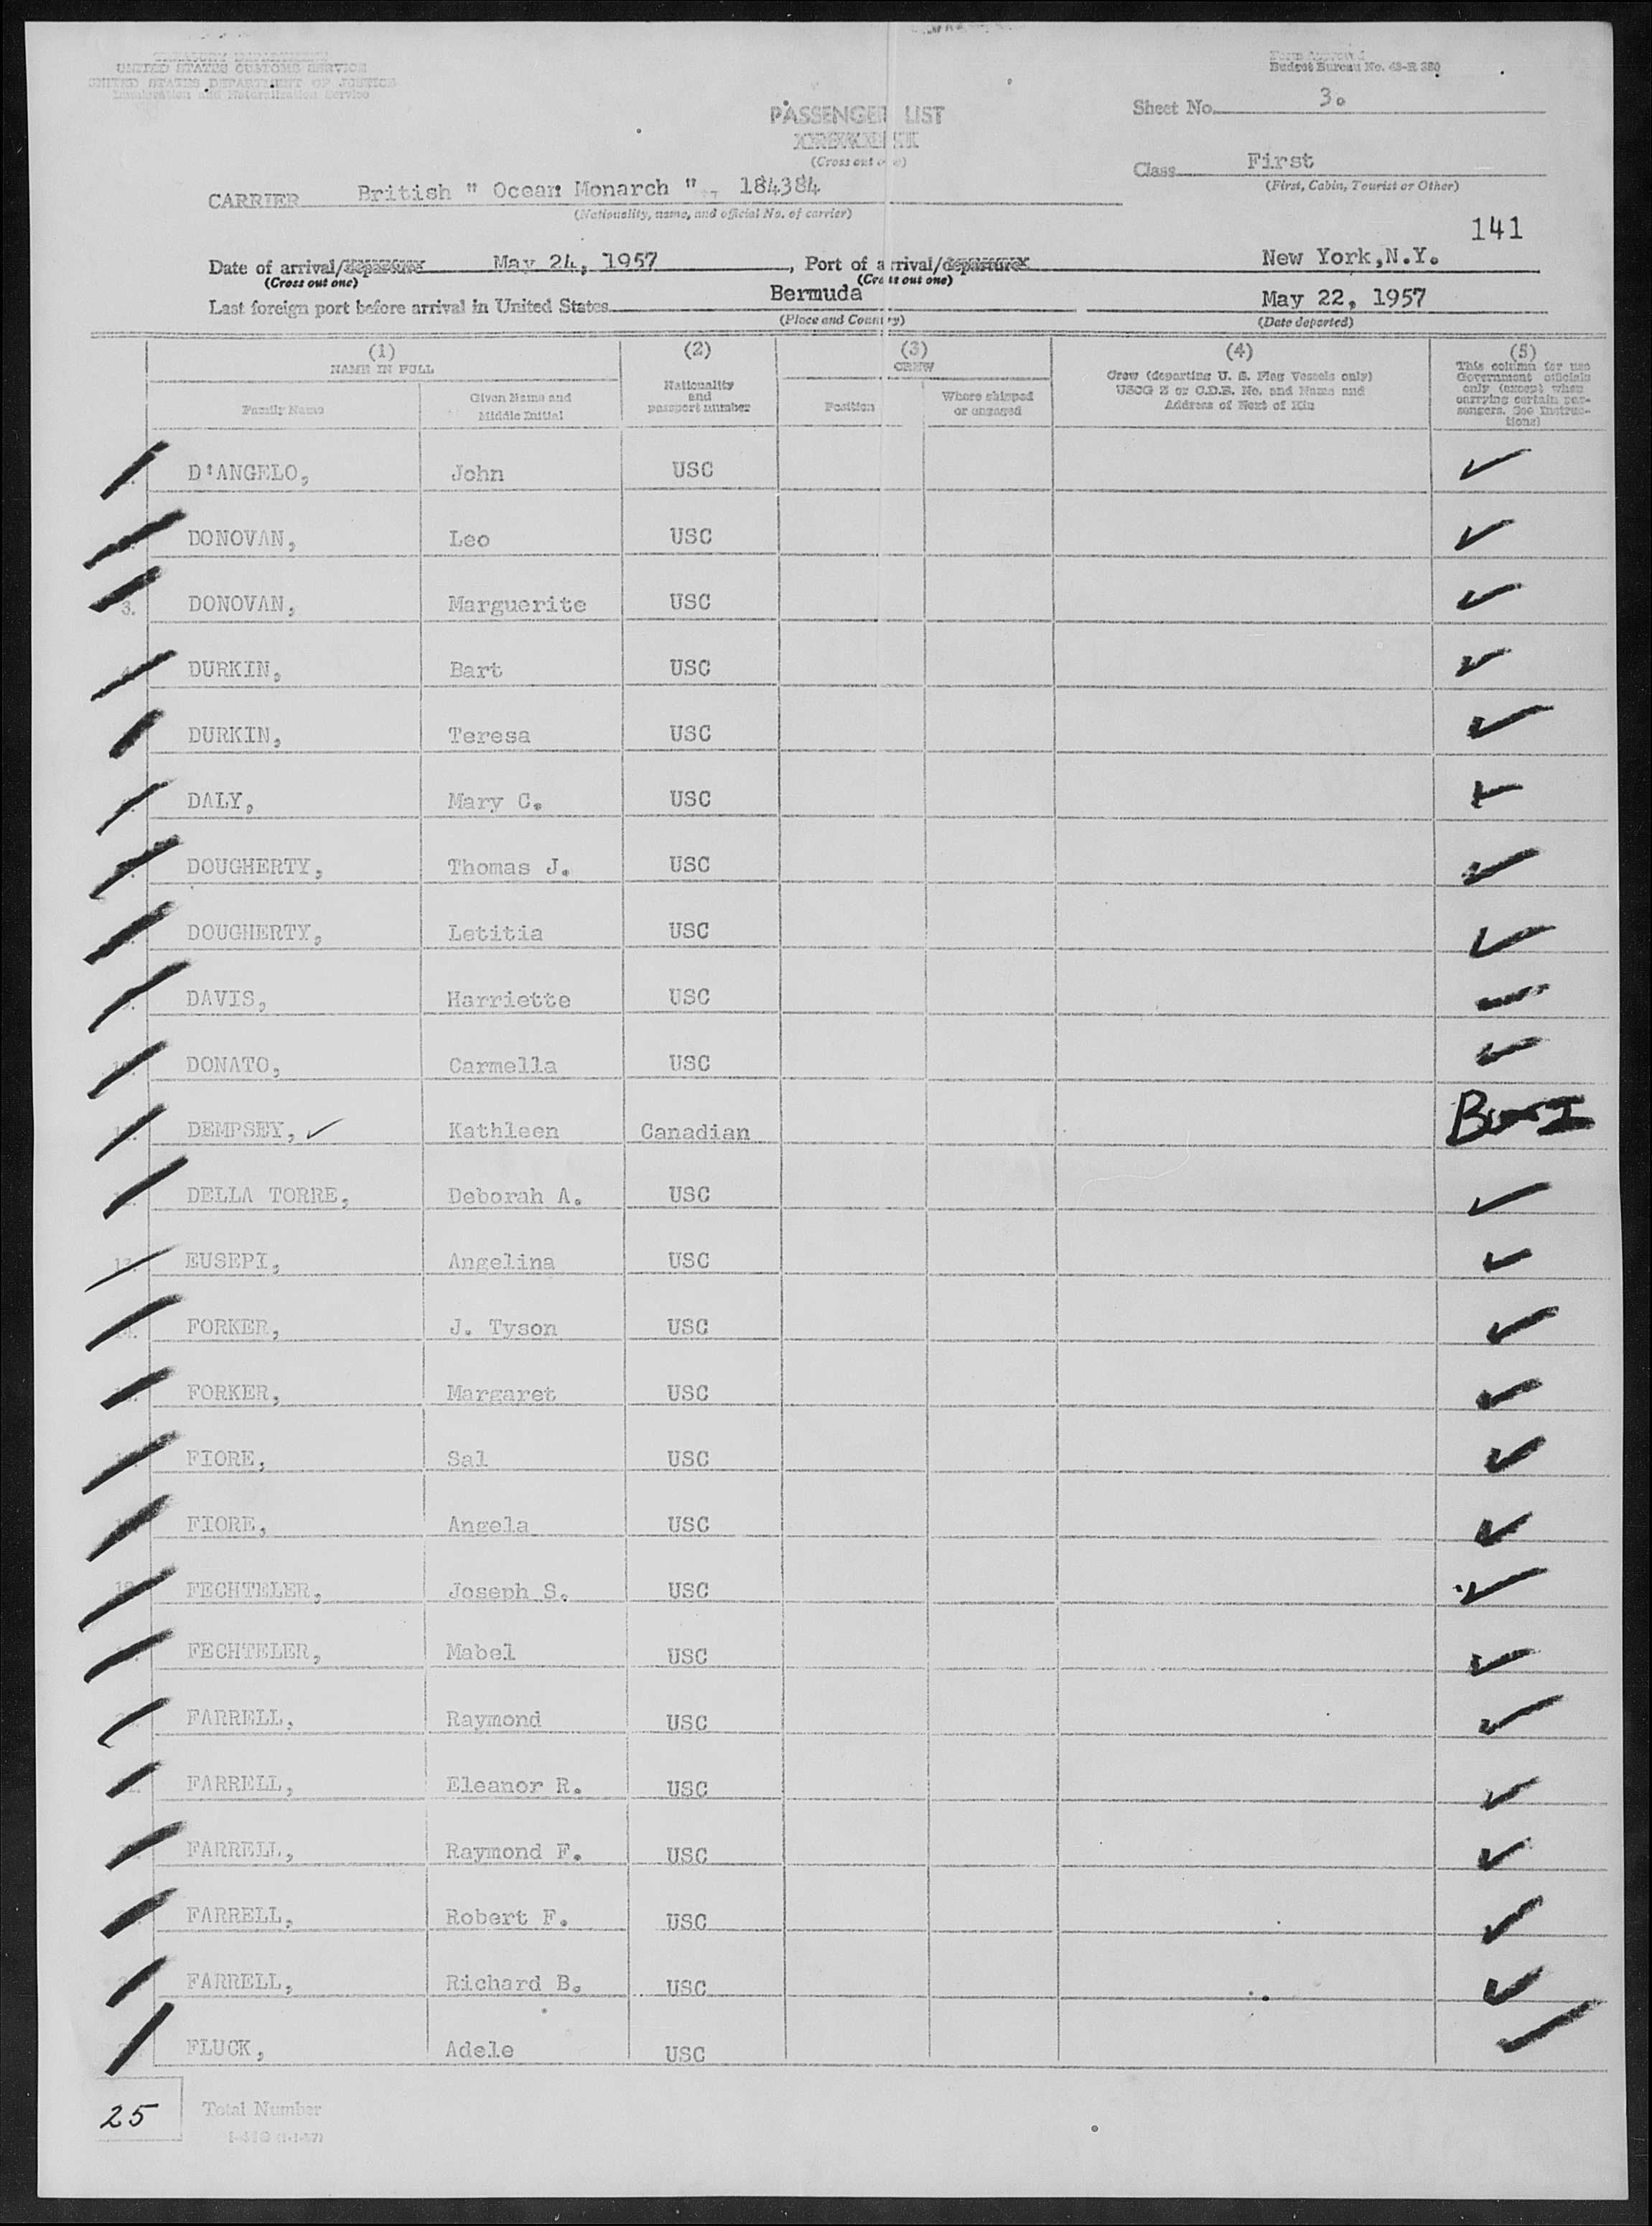 TREASURY DEPARTMENT
UNITED STATES CUSTOMS SERVICE
UNITED STATES DEPARTMENT OF JUSTICE
Immigration and Naturalization Service
Form Approved
Budget Bureau No. 43-R 380
PASSENGER LIST
(Cross out one)
Sheet No. 3.
Class First
(First, Cabin, Tourist or Other)
CARRIER British " Ocean Monarch " - 184384
(Nationality, name, and official No. of carrier)
141
Date of arrival/departure May 24, 1957, Port of arrival/departure New York,N.Y.
(Cross out one) (Cross out one)
Last foreign port before arrival in United States Bermuda May 22, 1957
(Place and Country) (Date departed)
(1) (2) (3) (4) (5)
NAME IN FULL
Family Name
Given Name and Middle Initial
Nationality and passport number
CREW
Position
Where shipped or engaged
Crew (departing U. S. Flag Vessels only)
USCG Z or C.D.B. No. and Name and
Address of Next of Kin
This column for use
Government officials
only (except when
carrying certain pas-
sengers. See Instruc-
tions)
D'ANGELO, John USC
DONOVAN, Leo USC
3. DONOVAN, Marguerite USC
DURKIN, Bart USC
DURKIN, Teresa USC
DALY, Mary C. USC
DOUGHERTY, Thomas J. USC
DOUGHERTY, Letitia USC
DAVIS, Harriette USC
DONATO, Carmella USC
DEMPSEY, Kathleen Canadian
DELLA TORRE, Deborah A. USC
EUSEPI, Angelina USC
FORKER, J. Tyson USC
FORKER, Margaret USC
FIORE, Sal USC
FIORE, Angela USC
FECHTELER, Joseph S. USC
FECHTELER, Mabel USC
FARRELL, Raymond USC
FARRELL, Eleanor R. USC
FARRELL, Raymond F. USC
FARRELL, Robert F. USC
FARRELL, Richard B. USC
FLUCK, Adele USC
25 Total Number